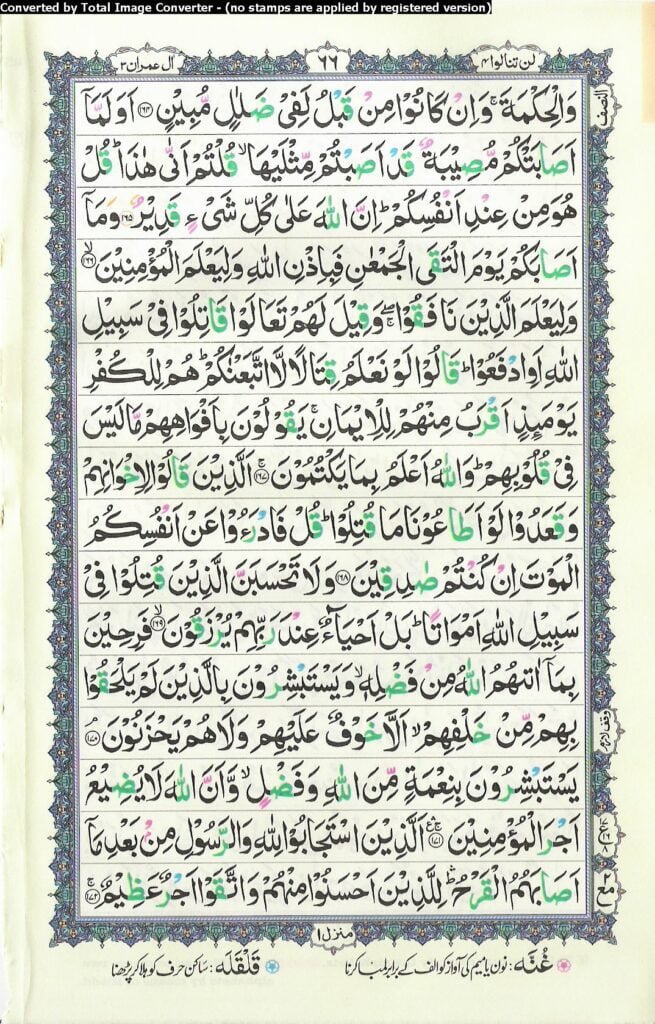 Converted by Total Image Converter - (no stamps are applied by registered version)
اٰل عمرٰن ۳
۶۶
لن تنالوا ۴
النصف
وَالْحِكْمَةَ ۚ وَاِنْ كَانُوْا مِنْ قَبْلُ لَفِیْ ضَلٰلٍ مُّبِیْنٍ ﴿۱۶۴﴾ اَوَلَمَّاۤ
اَصَابَتْكُمْ مُّصِیْبَةٌ قَدْ اَصَبْتُمْ مِّثْلَیْهَا ۙ قُلْتُمْ اَنّٰی هٰذَا ؕ قُلْ
هُوَ مِنْ عِنْدِ اَنْفُسِكُمْ ؕ اِنَّ اللّٰهَ عَلٰی كُلِّ شَیْءٍ قَدِیْرٌ ﴿۱۶۵﴾ وَمَاۤ
اَصَابَكُمْ یَوْمَ الْتَقَی الْجَمْعٰنِ فَبِاِذْنِ اللّٰهِ وَلِیَعْلَمَ الْمُؤْمِنِیْنَ ﴿۱۶۶﴾ ۙ
وَلِیَعْلَمَ الَّذِیْنَ نَافَقُوْا ۖۚ وَقِیْلَ لَهُمْ تَعَالَوْا قَاتِلُوْا فِیْ سَبِیْلِ
اللّٰهِ اَوِ ادْفَعُوْا ؕ قَالُوْا لَوْ نَعْلَمُ قِتَالًا لَّا تَّبَعْنٰكُمْ ؕ هُمْ لِلْكُفْرِ
یَوْمَىِٕذٍ اَقْرَبُ مِنْهُمْ لِلْاِیْمَانِ ۚ یَقُوْلُوْنَ بِاَفْوَاهِهِمْ مَّا لَیْسَ
فِیْ قُلُوْبِهِمْ ؕ وَاللّٰهُ اَعْلَمُ بِمَا یَكْتُمُوْنَ ﴿۱۶۷﴾ ۚ اَلَّذِیْنَ قَالُوْا لِاِخْوَانِهِمْ
وَقَعَدُوْا لَوْ اَطَاعُوْنَا مَا قُتِلُوْا ؕ قُلْ فَادْرَءُوْا عَنْ اَنْفُسِكُمُ
الْمَوْتَ اِنْ كُنْتُمْ صٰدِقِیْنَ ﴿۱۶۸﴾ وَلَا تَحْسَبَنَّ الَّذِیْنَ قُتِلُوْا فِیْ
سَبِیْلِ اللّٰهِ اَمْوَاتًا ؕ بَلْ اَحْیَآءٌ عِنْدَ رَبِّهِمْ یُرْزَقُوْنَ ﴿۱۶۹﴾ ۙ فَرِحِیْنَ
بِمَاۤ اٰتٰىهُمُ اللّٰهُ مِنْ فَضْلِهٖ ۙ وَیَسْتَبْشِرُوْنَ بِالَّذِیْنَ لَمْ یَلْحَقُوْا
بِهِمْ مِّنْ خَلْفِهِمْ ۙ اَلَّا خَوْفٌ عَلَیْهِمْ وَلَا هُمْ یَحْزَنُوْنَ ﴿۱۷۰﴾ ۘ
وقف لازم
یَسْتَبْشِرُوْنَ بِنِعْمَةٍ مِّنَ اللّٰهِ وَفَضْلٍ ۙ وَّاَنَّ اللّٰهَ لَا یُضِیْعُ
اَجْرَ الْمُؤْمِنِیْنَ ﴿۱۷۱﴾ اَلَّذِیْنَ اسْتَجَابُوْا لِلّٰهِ وَالرَّسُوْلِ مِنْ بَعْدِ مَاۤ
اَصَابَهُمُ الْقَرْحُ ؕۛ لِلَّذِیْنَ اَحْسَنُوْا مِنْهُمْ وَاتَّقَوْا اَجْرٌ عَظِیْمٌ ﴿۱۷۲﴾ ۚ
منزل ۱
غُنَّه: نون یا میم کی آواز کو الف کے برابر لمبا کرنا
قَلْقَلَه: ساکن حرف کو ہلا کر پڑھنا